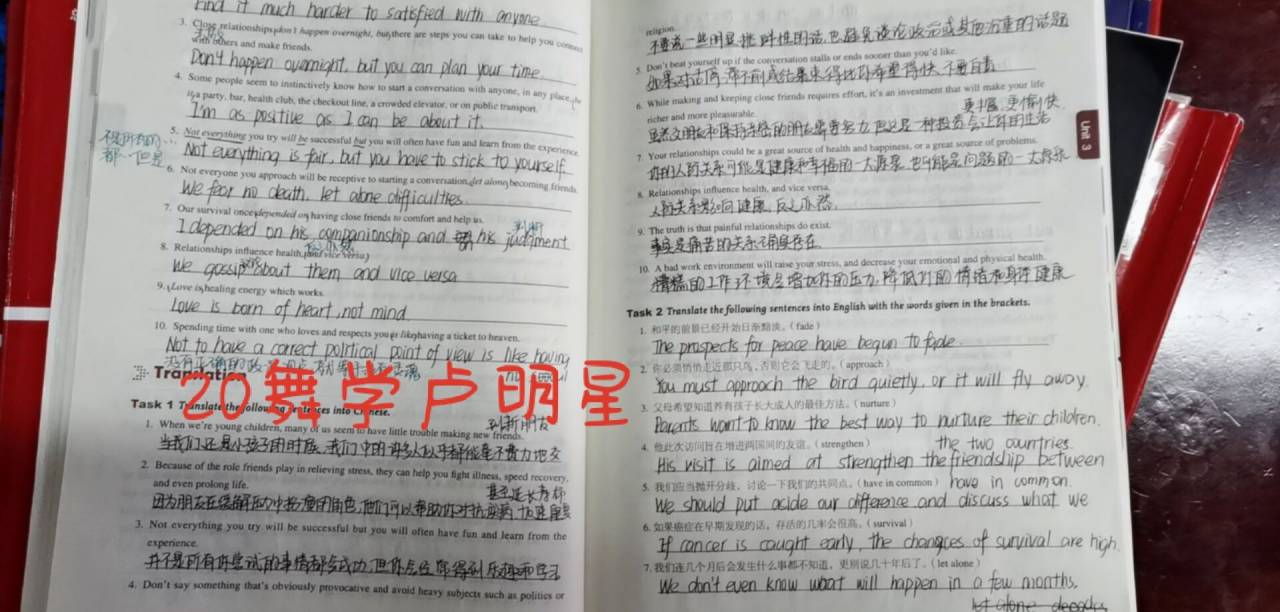 find it much harder to satisfied with anyone.
3. Close relationships don't happen overnight, but there are steps you can take to help you connect
with others and make friends.
Don't happen overnight, but you can plan your time.
4. Some people seem to instinctively know how to start a conversation with anyone, in any place, be
it a party, bar, health club, the checkout line, a crowded elevator, or on public transport.
I'm as positive as I can be about it.
5. Not everything you try will be successful but you will often have fun and learn from the experience.
不是所有的
都…但是
Not everything is fair, but you have to stick to yourself.
6. Not everyone you approach will be receptive to starting a conversation, let alone becoming friends.
We fear no death, let alone difficulties.
7. Our survival once depended on having close friends to comfort and help us.
判断
I depended on his companionship and his judgment
8. Relationships influence health, and vice versa.
反之亦然
We gossip about them and vice versa
9. Love is healing energy which works.
Love is born of heart, not mind.
10. Spending time with one who loves and respects you is like having a ticket to heaven.
Not to have a correct political point of view is like having
no soul
20舞学卢明星
Translation
Task 1 Translate the following sentences into Chinese.
1. When we're young children, many of us seem to have little trouble making new friends.
到新朋友
当我们还是小孩子的时候,我们中的许多人似乎都能毫不费力地交
2. Because of the role friends play in relieving stress, they can help you fight illness, speed recovery,
and even prolong life.
甚至延长寿命
因为朋友在缓解压力中扮演的角色,他们可以帮助你对抗疾病,加速康复
3. Not everything you try will be successful but you will often have fun and learn from the
experience.
并不是所有你尝试的事情都会成功,但你会经常得到乐趣和学习
4. Don't say something that's obviously provocative and avoid heavy subjects such as politics or
religion.
不要说一些明显挑衅性的话,也避免谈论政治或其他沉重的话题
5. Don't beat yourself up if the conversation stalls or ends sooner than you'd like.
如果对话停滞不前或结束得比你希望得快,不要自责
6. While making and keeping close friends requires effort, it's an investment that will make your life
richer and more pleasurable.
更丰富,更愉快
虽然交朋友和保持亲密的朋友需要努力,但这是一种投资会让你的生活
7. Your relationships could be a great source of health and happiness, or a great source of problems.
你的人际关系可能是健康和幸福的一大源泉,也可能是问题的一大源泉
8. Relationships influence health, and vice versa.
人际关系影响健康,反之亦然.
9. The truth is that painful relationships do exist.
事实是痛苦的关系确实存在
10. A bad work environment will raise your stress, and decrease your emotional and physical health.
糟糕的工作环境会增加你的压力,降低你的情绪和身体健康
Task 2 Translate the following sentences into English with the words given in the brackets.
1. 和平的前景已经开始日渐黯淡。(fade)
The prospects for peace have begun to fade.
2. 你必须悄悄走近那只鸟,否则它会飞走的。(approach)
You must approach the bird quietly, or it will fly away.
3. 父母希望知道养育孩子长大成人的最佳方法。(nurture)
Parents want to know the best way to nurture their children.
4. 他此次访问旨在增进两国间的友谊。(strengthen)
the two countries.
His visit is aimed at strengthen the friendship between
5. 我们应当抛开分歧,讨论一下我们的共同点。(have in common)
have in common.
We should put acide our difference and discuss what we
6. 如果癌症在早期发现的话,存活的几率会很高。(survival)
If cancer is caught early, the changces of survival are high.
7. 我们连几个月后会发生什么事都不知道,更别说几十年后了。(let alone)
We don't even know what will happen in a few months,
let alone decades
Unit 3